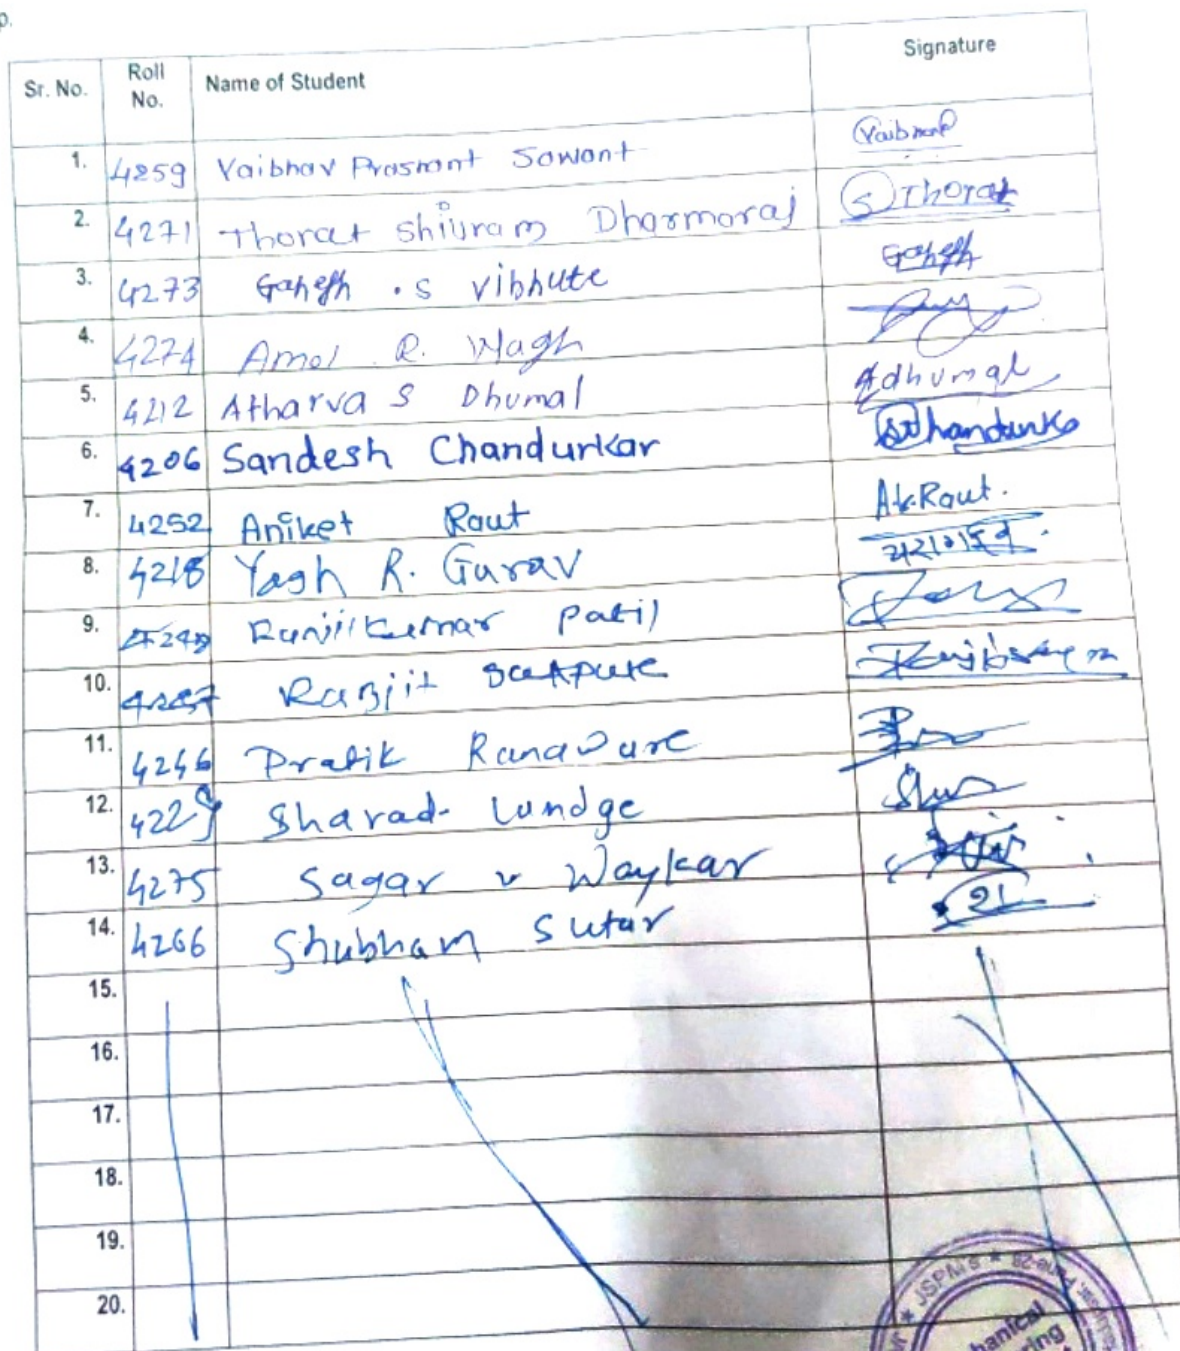 Sr. No. Roll No. Name of Student Signature
1. 4259 Vaibhav Prasnant Sawant Vaibhav
2. 4271 Thorat Shivram Dharmaraj S Thorat
3. 4273 Ganesh . S Vibhute Ganesh
4. 4274 Amol R. Wagh
5. 4212 Atharva S Dhumal Adhumal
6. 4206 Sandesh Chandurkar
7. 4252 Aniket Raut A.K.Raut.
8. 4218 Yash R. Gurav
9. Patil
10. Ranjit Satpute
11. 4246 Pratik Ranavare
12. 4229 Sharad Lundge
13. 4275 Sagar v Waykar
14. 4266 Shubham Sutar
15.
16.
17.
18.
19.
20.
★ JSPM's ★ Pune-28